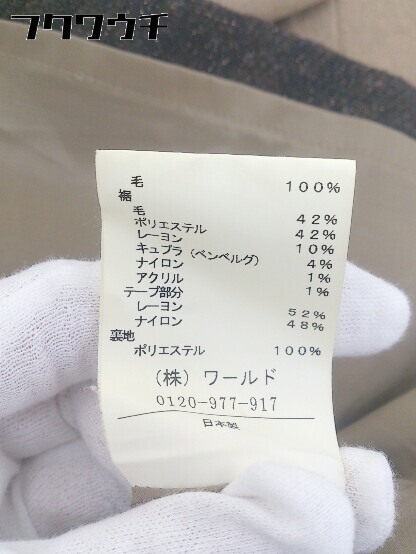 フクワウチ
毛 100%
裾
毛 42%
ポリエステル 42%
レーヨン 10%
キュプラ（ベンベルグ） 4%
ナイロン 1%
アクリル 1%
テープ部分
レーヨン 52%
ナイロン 48%
裏地
ポリエステル 100%
（株）ワールド
0120-977-917
日本製